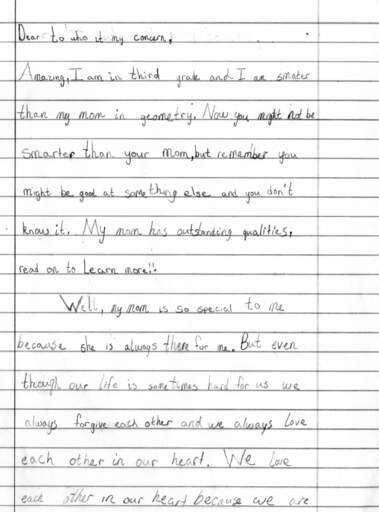 Dear to who it my concern,
Amazing, I am in third grade and I am smater
than my mom in geometry. Now you might not be
smarter than your mom, but remember you
might be good at something else and you don't
know it. My mom has outstanding qualities,
read on to Learn more!!
Well, my mom is so special to me
because she is always there for me. But even
though our life is sometimes hard for us we
always forgive each other and we always Love
each other in our heart. We Love
each other in our heart because we are